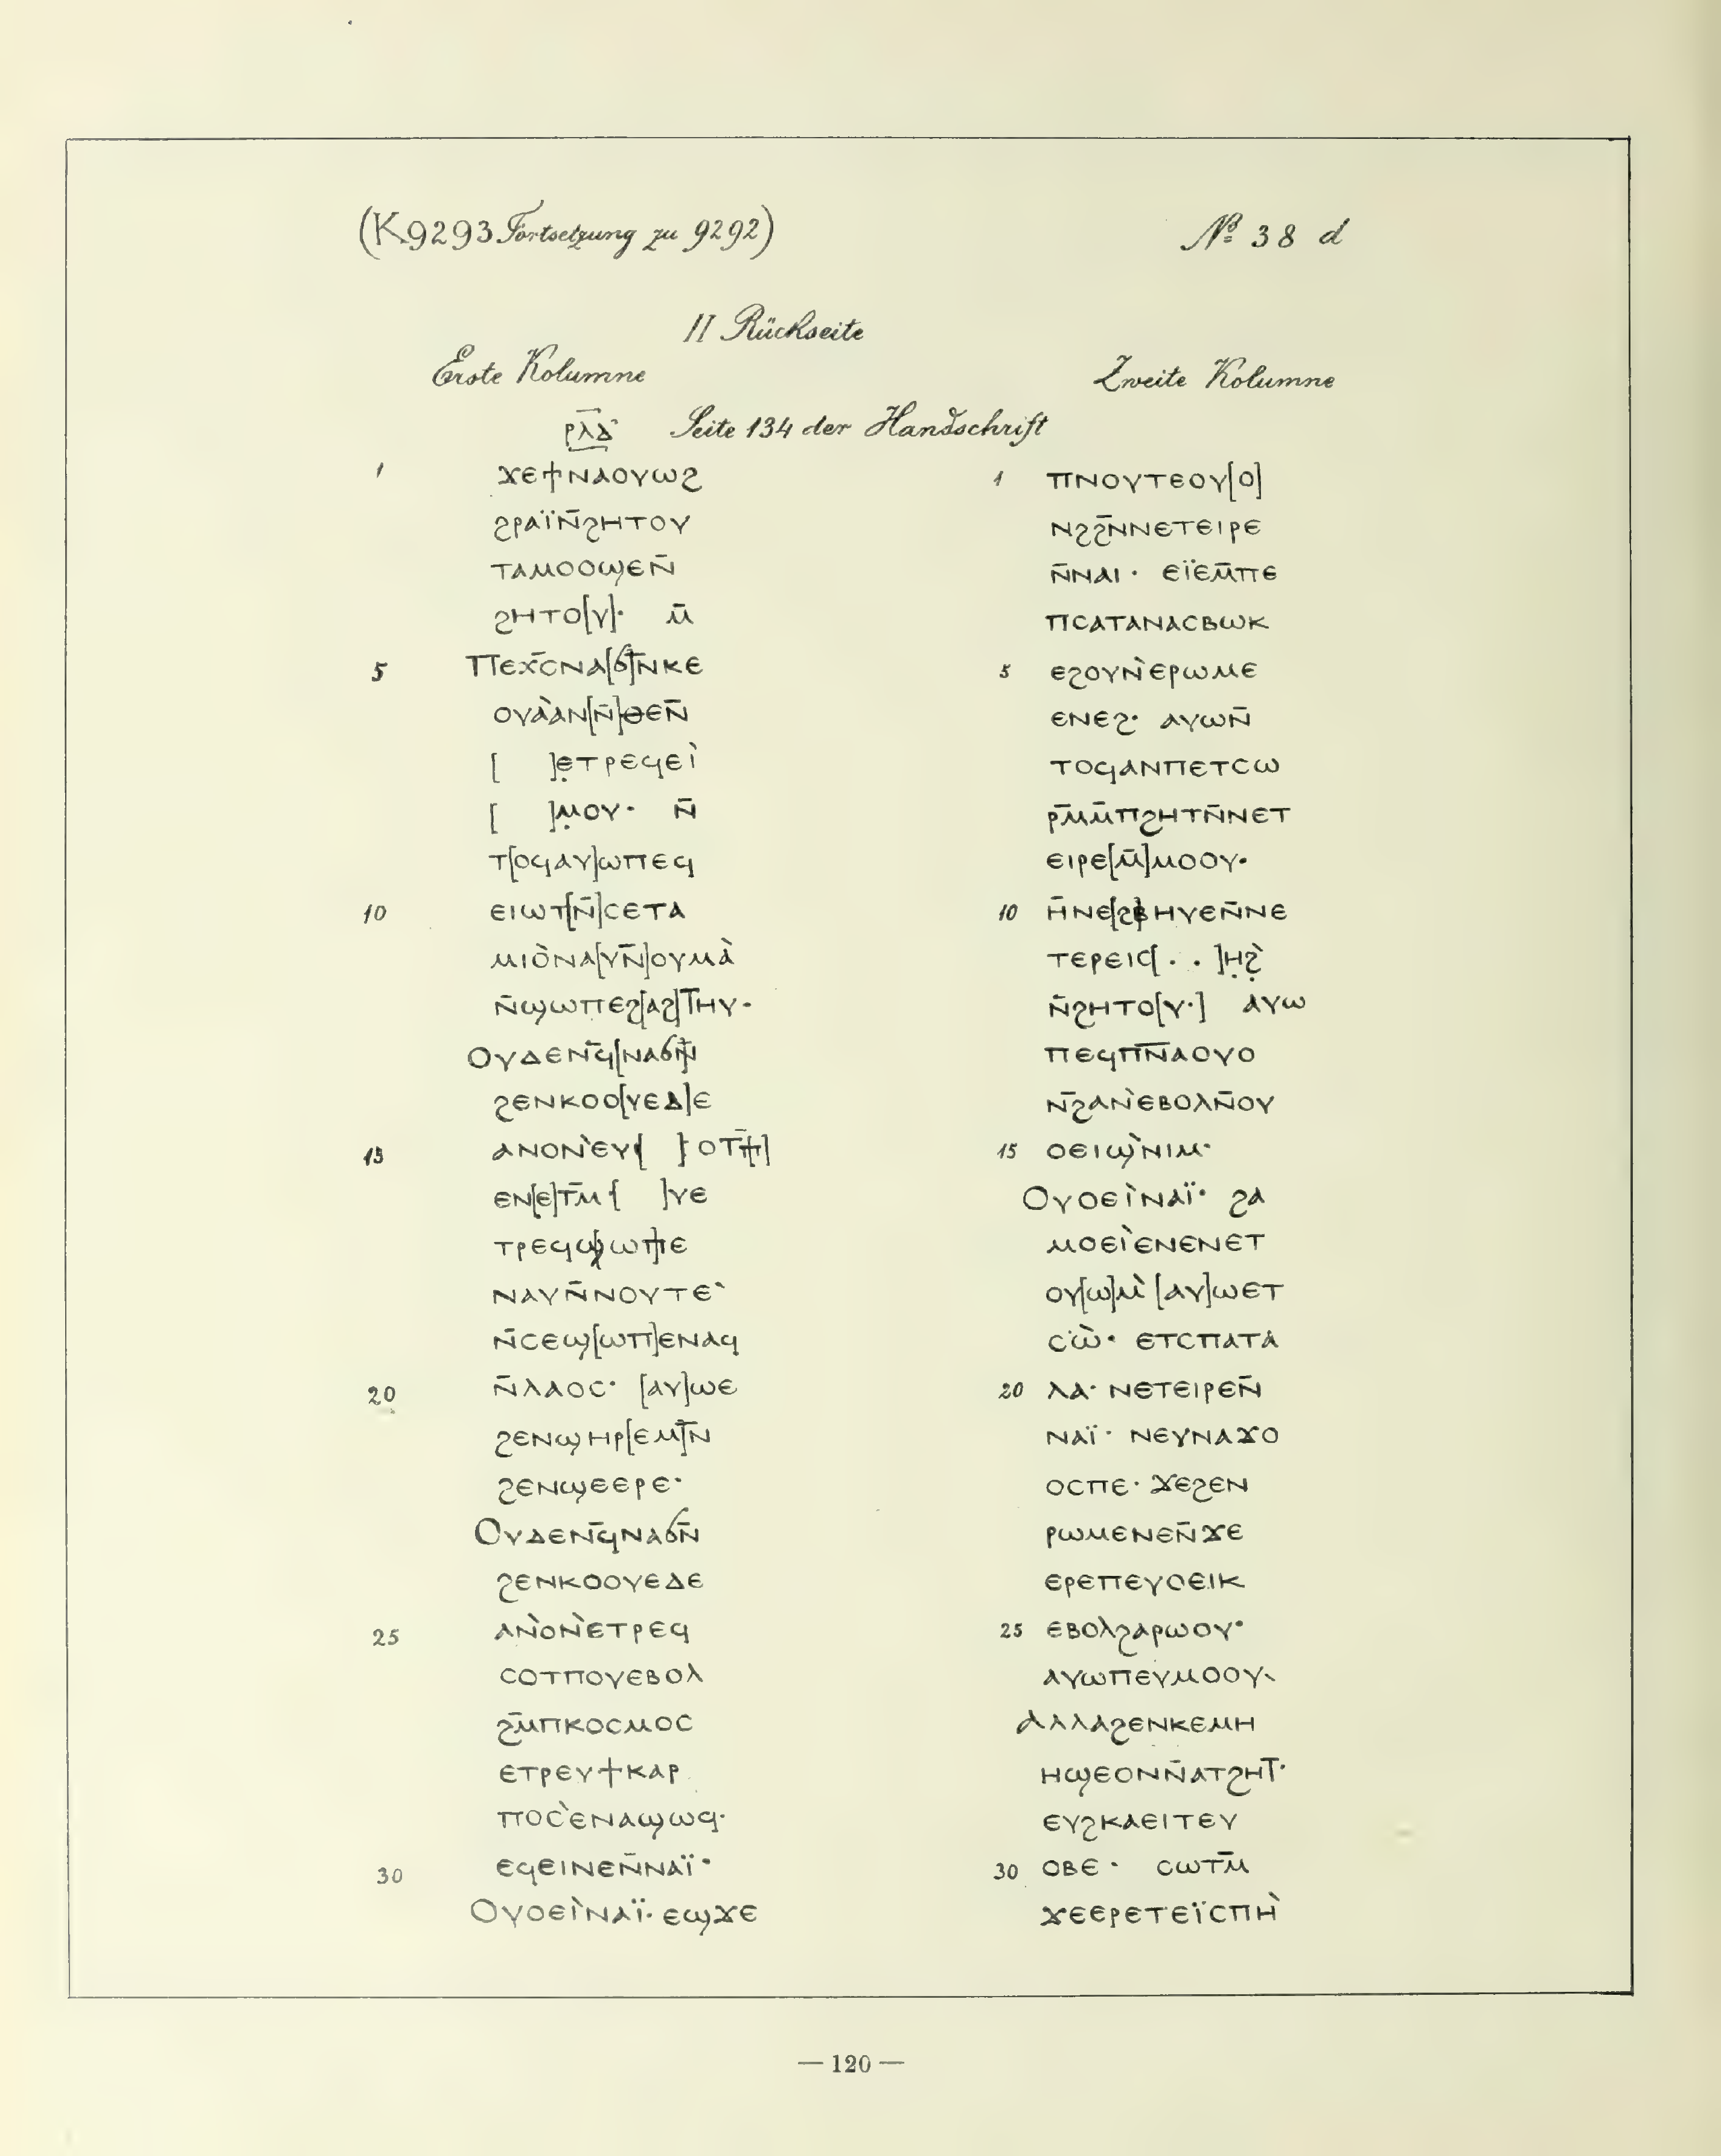 (K9293 Fortsetzung zu 9292)
No 38 d
II Rückseite
Erste Kolumne
Zweite Kolumne
ⲣ̅ⲗ̅ⲇ̅ Seite 134 der Handschrift
1 ϫⲉϯⲛⲁⲟⲩⲱϩ
ϩⲣⲁⲓ̈ⲛ̄ϩⲏⲧⲟⲩ
ⲧⲁⲙⲟⲟϣⲉⲛ̄
ϩⲏⲧⲟ[ⲩ]· ⲙ̄
5 ⲡⲉⲭ̄ⲥ̄ⲛⲁ[ϭⲛ̄]ⲛⲕⲉ
ⲟⲩⲁ̀ⲁⲛ[ⲛ̄]ⲑⲉⲛ̄
[ ]ⲉ̣ⲧⲣⲉϥⲉⲓ̀
[ ]ⲙ̣ⲟⲩ· ⲛ̄
ⲧ[ⲟϥⲁⲩ]ⲱⲡⲉϥ
10 ⲉⲓⲱⲧ[ⲛ̄]ⲥⲉⲧⲁ
ⲙⲓⲟ̀ⲛⲁ[ⲩⲛ̄]ⲟⲩⲙⲁ̀
ⲛ̄ϣⲱⲡⲉϩ[ⲁϩ]ⲧⲏⲩ·
ⲟⲩⲇⲉⲛϥ̄[ⲛⲁϭⲛ̄]
ϩⲉⲛⲕⲟⲟ[ⲩⲉⲇ]ⲉ
15 ⲁⲛⲟⲛ̀ⲉⲩ[ ]ⲟⲧ[ⲛ̄]
ⲉⲛ[ⲉ]ⲧⲙ̄[ ]ⲩⲉ
ⲧⲣⲉϥϣⲱⲡⲉ
ⲛⲁⲩⲛ̄ⲛⲟⲩⲧⲉ̀
ⲛ̄ⲥⲉϣ[ⲱⲡ]ⲉⲛⲁϥ
20 ⲛ̄ⲗⲁⲟⲥ· [ⲁⲩ]ⲱⲉ
ϩⲉⲛϣⲏⲣ[ⲉⲙ]ⲛ̄
ϩⲉⲛϣⲉⲉⲣⲉ·
ⲟⲩⲇⲉⲛϥ̄ⲛⲁϭⲛ̄
ϩⲉⲛⲕⲟⲟⲩⲉⲇⲉ
25 ⲁⲛ̀ⲟⲛ̀ⲉⲧⲣⲉϥ
ⲥⲟⲧⲡⲟⲩⲉⲃⲟⲗ
ϩⲙ̄ⲡⲕⲟⲥⲙⲟⲥ
ⲉⲧⲣⲉⲩϯⲕⲁⲣ
ⲡⲟⲥ̀ⲉⲛⲁϣⲱϥ·
30 ⲉϥⲉⲓⲛⲉⲛ̄ⲛⲁⲓ̈·
ⲟⲩⲟⲉⲓ̀ⲛⲁⲓ̈· ⲉϣϫⲉ
1 ⲡⲛⲟⲩⲧⲉⲟⲩ[ⲟ]
ⲛϩϩⲛ̄ⲛⲉⲧⲉⲓⲣⲉ
ⲛ̄ⲛⲁⲓ· ⲉⲓ̈ⲉⲙ̄ⲡⲉ
ⲡⲥⲁⲧⲁⲛⲁⲥⲃⲱⲕ
5 ⲉϩⲟⲩⲛ̀ⲉⲣⲱⲙⲉ
ⲉⲛⲉϩ· ⲁⲩⲱⲛ̄
ⲧⲟϥⲁⲛⲡⲉⲧⲥⲱ
ⲣ̄ⲙ̄ⲙ̄ⲡϩⲏⲧⲛ̄ⲛⲉⲧ
ⲉⲓⲣⲉ[ⲙ̄]ⲙⲟⲟⲩ·
10 ⲏ̄ⲛⲉ[ϩⲃ]ⲏⲩⲉⲛ̄ⲛⲉ
ⲧⲉⲣⲉⲓⲥ[· · ]ⲏ̣ϩ̣̀
ⲛ̄ϩⲏⲧⲟ[ⲩ·] ⲁⲩⲱ
ⲡⲉϥⲡ̄ⲛ̄ⲁⲟⲩⲟ
ⲛϩ̄ⲁⲛ̀ⲉⲃⲟⲗⲛ̄ⲟⲩ
15 ⲟⲉⲓϣ̀ⲛⲓⲙ·
ⲟⲩⲟⲉⲓ̀ⲛⲁⲓ̈· ϩⲁ
ⲙⲟⲉⲓ̀ⲉⲛⲉⲛⲉⲧ
ⲟⲩ[ⲱ]ⲙ̀ [ⲁⲩ]ⲱⲉⲧ
ⲥⲱ̀· ⲉⲧⲥⲡⲁⲧⲁ
20 ⲗⲁ· ⲛⲉⲧⲉⲓⲣⲉⲛ̄
ⲛⲁⲓ̈· ⲛⲉⲩⲛⲁϫⲟ
ⲟⲥⲡⲉ· ϫⲉϩⲉⲛ
ⲣⲱⲙⲉⲛⲉⲛ̄ϫⲉ
ⲉⲣⲉⲡⲉⲩⲟⲉⲓⲕ
25 ⲉⲃⲟⲗϩⲁⲣⲱⲟⲩ·
ⲁⲩⲱⲡⲉⲩⲙⲟⲟⲩ·
ⲁⲗⲗⲁϩⲉⲛⲕⲉⲙⲏ
ⲏϣⲉⲟⲛⲛ̄ⲁⲧϩⲏⲧ·
ⲉⲩϩⲕⲁⲉⲓⲧⲉⲩ
30 ⲟⲃⲉ· ⲥⲱⲧⲙ̄
ϫⲉⲉⲣⲉⲧⲉⲓ̈ⲥⲡⲏ̀
— 120 —